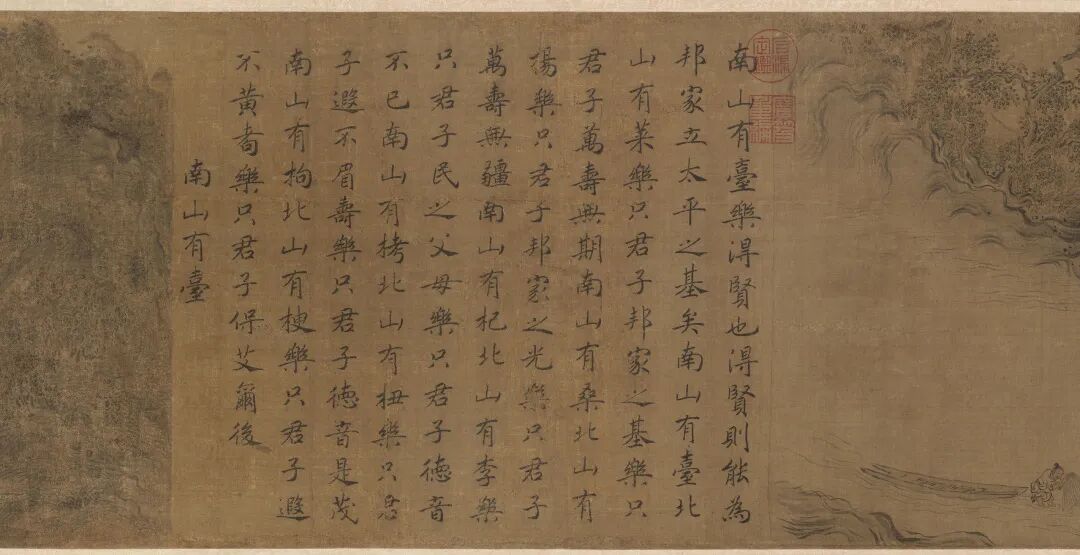 南山有臺樂得賢也得賢則能為
邦家立太平之基矣南山有臺北
山有萊樂只君子邦家之基樂只
君子萬壽無期南山有桑北山有
楊樂只君子邦家之光樂只君子
萬壽無疆南山有杞北山有李樂
只君子民之父母樂只君子德音
不已南山有栲北山有杻樂只君
子遐不眉壽樂只君子德音是茂
南山有枸北山有楰樂只君子遐
不黃耇樂只君子保艾爾後
南山有臺